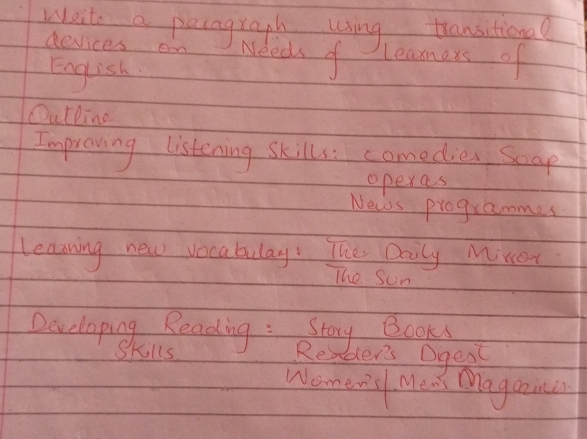 Write a paragraph using transitional
devices on Needs of Learners of
English.
Outline
Improving listening skills: comedies Soap
operas
News programmes
Learning new vocabulay: The Daily Mirror
The Sun
Developing Reading : Story Books
Skills Reader's Dgest
Women's/Men's Magazines